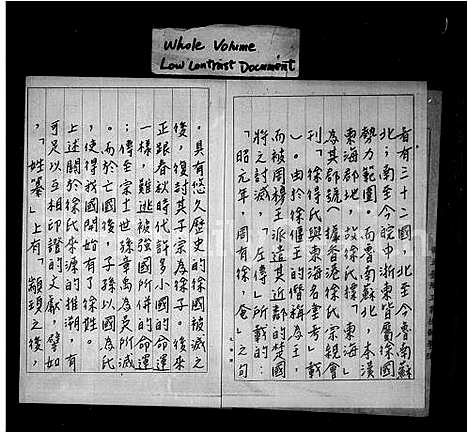 Whole Volume
Low Contrast Document
者有三十二國，北至今魯南蘇
北；南至今皖中浙東皆屬徐國
勢力範圍。而魯南蘇北，本漢
東海郡地，故徐氏擇「東海」
為其郡號。據香港徐氏宗親會
刊「徐得氏與東海名堂考」載
）。由於徐偃王的僭稱為王，
而被周穆王派遣其近郡的楚國
將之討滅，「左傳」所載的：
「昭元年，周有徐、奄」之句
。具有悠久歷史的徐國被滅之
後，復封其子宗為徐子。後來
正跟春秋時代許多小國的命運
一樣，難逃被強國所併的命運
；傳至宗十一世孫章禹為吳所滅
。而於亡國後，子孫以國為氏
，使得我國開始有了徐姓。
上述關於徐氏來源的推溯，有
可足以互相印證的文獻，譬如
，「姓纂」上有「顓頊之後，